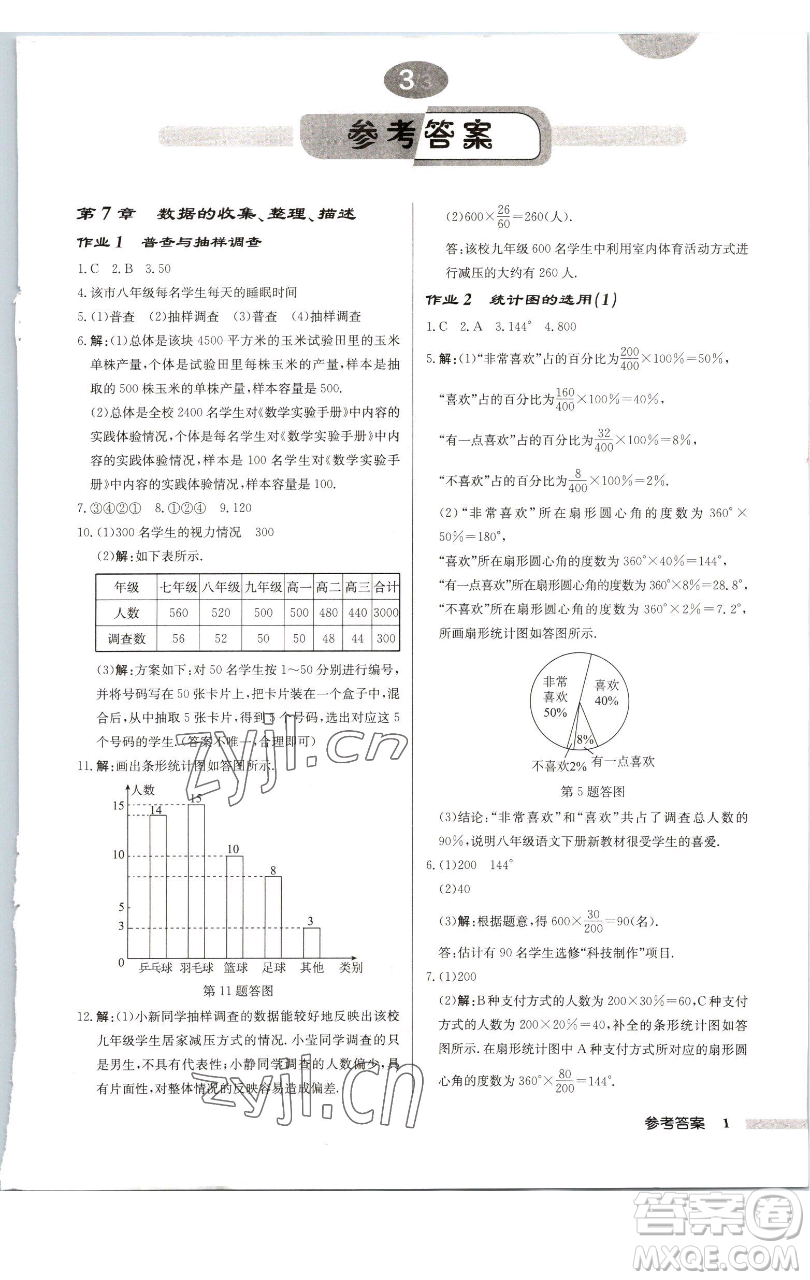 3/3
参考答案
第7章 数据的收集、整理、描述
作业1 普查与抽样调查
1.C 2.B 3.50
4.该市八年级每名学生每天的睡眠时间
5.(1)普查 (2)抽样调查 (3)普查 (4)抽样调查
6.解:(1)总体是该块 4500 平方米的玉米试验田里的玉米
单株产量,个体是试验田里每株玉米的单株产量,样本是抽
取的 500 株玉米的单株产量,样本容量是 500.
(2)总体是全校 2400 名学生对《数学实验手册》中内容的
实践体验情况,个体是每名学生对《数学实验手册》中内容
的实践体验情况,样本是 100 名学生对《数学实验手
册》中内容的实践体验情况,样本容量是 100.
7.③④②① 8.①②④ 9.120
10.(1)300 名学生的视力情况 300
(2)解:如下表所示.
年级 七年级 八年级 九年级 高一 高二 高三 合计
人数 560 520 500 500 480 440 3000
调查数 56 52 50 50 48 44 300
(3)解:方案如下:对 50 名学生按 1～50 分别进行编号,
并将号码写在 50 张卡片上,把卡片装在一个盒子中,混
合后,从中抽取 5 张卡片,得到 5 个号码,选出对应这 5
个号码的学生.(答案不唯一,合理即可)
11.解:画出条形统计图如答图所示.
人数
15
10
5
3
0
14
15
10
8
3
乒乓球 羽毛球 篮球 足球 其他 类别
第 11 题答图
12.解:(1)小新同学抽样调查的数据能较好地反映出该校
九年级学生居家减压方式的情况.小莹同学调查的只
是男生,不具有代表性;小静同学调查的人数偏少,具
有片面性,对整体情况的反映容易造成偏差.
(2)600×26/60=260(人).
答:该校九年级 600 名学生中利用室内体育活动方式进
行减压的大约有 260 人.
作业2 统计图的选用(1)
1.C 2.A 3.144° 4.800
5.解:(1)“非常喜欢”占的百分比为200/400×100%=50%,
“喜欢”占的百分比为160/400×100%=40%,
“有一点喜欢”占的百分比为32/400×100%=8%,
“不喜欢”占的百分比为8/400×100%=2%.
(2)“非常喜欢”所在扇形圆心角的度数为 360°×
50%=180°,
“喜欢”所在扇形圆心角的度数为 360°×40%=144°,
“有一点喜欢”所在扇形圆心角的度数为 360°×8%=28.8°,
“不喜欢”所在扇形圆心角的度数为 360°×2%=7.2°.
所画扇形统计图如答图所示.
非常
喜欢
50%
喜欢
40%
8%
不喜欢2% 有一点喜欢
第 5 题答图
(3)结论:“非常喜欢”和“喜欢”共占了调查总人数的
90%,说明八年级语文下册新教材很受学生的喜爱.
6.(1)200 144°
(2)40
(3)解:根据题意,得 600×30/200=90(名).
答:估计有 90 名学生选修“科技制作”项目.
7.(1)200
(2)解:B种支付方式的人数为 200×30%=60,C种支付
方式的人数为 200×20%=40,补全的条形统计图如答
图所示.在扇形统计图中 A 种支付方式所对应的扇形圆
心角的度数为 360°×80/200=144°.
zyjl.cn
zyjl.cn
参考答案 1
答案圈
MXQE.COM